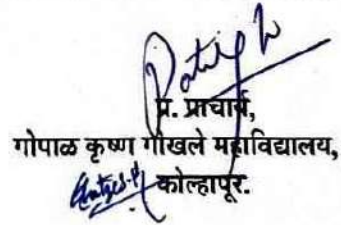 प्र. प्राचार्य,
गोपाळ कृष्ण गोखले महाविद्यालय,
कोल्हापूर.